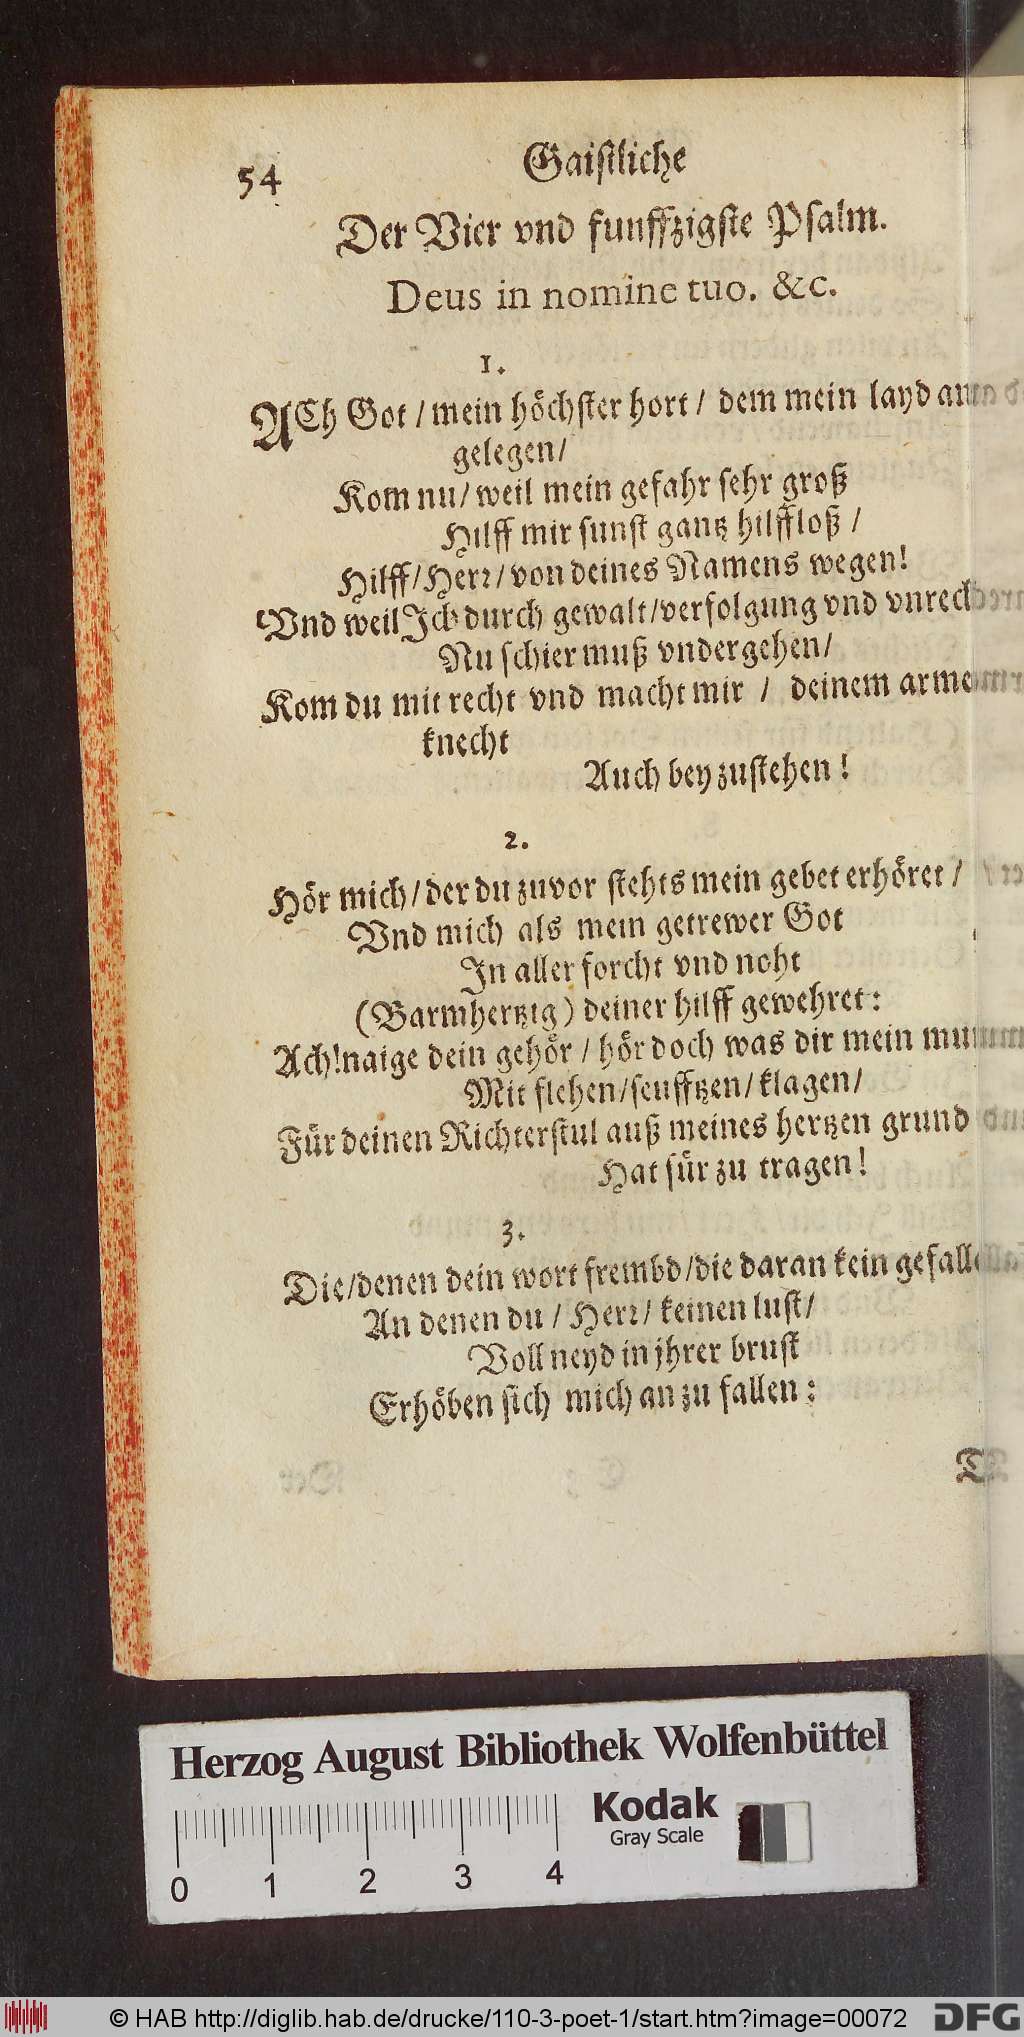 54
Gaistliche
Der Vier vnd funffzigste Psalm.
Deus in nomine tuo. &c.
1.
ACh Got / mein höchster hort / dem mein layd
gelegen /
Kom nu / weil mein gefahr sehr groß
Hilff mir sunst gantz hilffloß /
Hilff / Herr / von deines Namens wegen!
Vnd weil Ich durch gewalt / verfolgung vnd vnrecht
Nu schier muß vndergehen /
Kom du mit recht vnd macht mir / deinem armen
knecht
Auch beyzustehen!
2.
Hör mich / der du zuvor stehts mein gebet erhöret /
Vnd mich als mein getrewer Got
In aller forcht vnd noht
(Barmhertzig) deiner hilff gewehret:
Ach! naige dein gehör / hör doch was dir mein
Mit flehen / seufftzen / klagen /
Für deinen Richterstul auß meines hertzen grund
Hat für zu tragen!
3.
Die / denen dein wort frembd / die daran kein
An denen du / Herr / keinen lust /
Voll neyd in jhrer brust
Erhöben sich mich an zu fallen:
Herzog August Bibliothek Wolfenbüttel
Kodak
Gray Scale
0 1 2 3 4
© HAB http://diglib.hab.de/drucke/110-3-poet-1/start.htm?image=00072
DFG